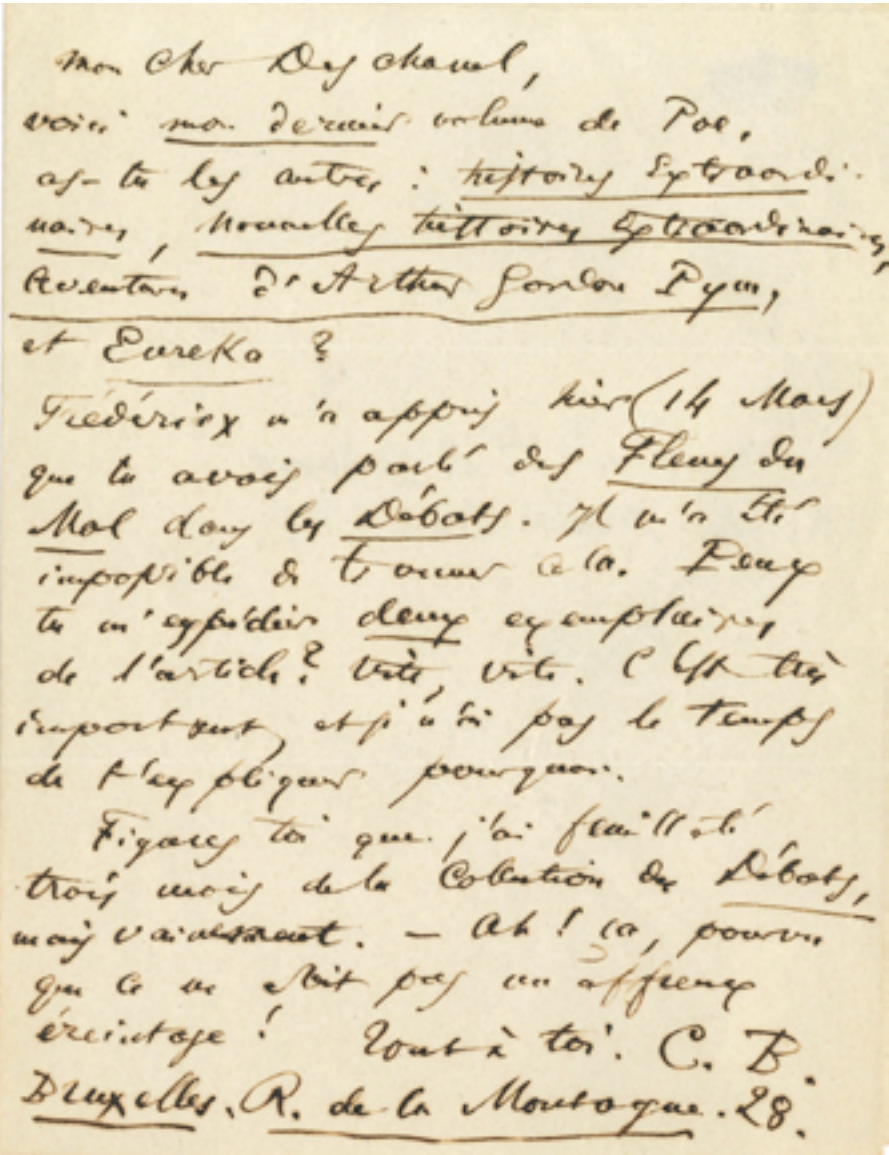 mon cher Deschanel,
voici mon dernier volume de Poe,
as-tu les autres : histoires Extraordi-
naires, Nouvelles histoires Extraordinaires,
Aventures d'Arthur Gordon Pym,
et Eureka ?
Frédérix m'a appris hier (14 Mars)
que tu avais parlé des Fleurs du
Mal dans les Débats. Il m'a été
impossible de trouver cela. Peux
tu m'expédier deux exemplaires
de l'article ? Vite, vite. C'est très
important, et je n'ai pas le temps
de t'expliquer pourquoi.
Figures toi que j'ai feuilleté
trois mois de la Collection des Débats,
mais vainement. — Ah ! ça, pourvu
que ce ne soit pas un affreux
éreintage ! Tout à toi. C. B.
Bruxelles. R. de la Montagne. 28.